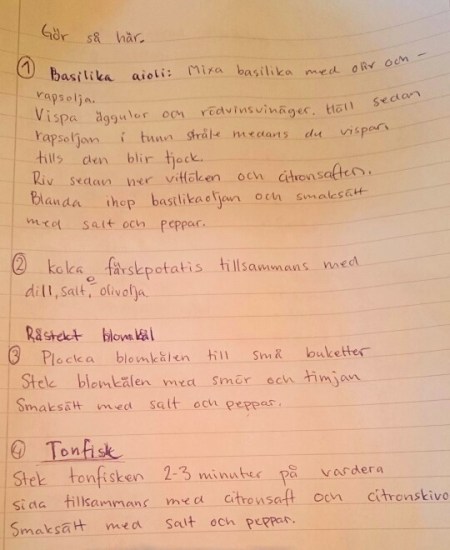 Gör så här.
① Basilika aioli: Mixa basilika med oliv och -
rapsolja.
Vispa äggulor och rödvinsvinäger. Häll sedan
rapsoljan i tunn stråle medans du vispar
tills den blir tjock.
Riv sedan ner vitlöken och citronsaften.
Blanda ihop basilikaoljan och smaksätt
med salt och peppar.
② Koka färskpotatis tillsammans med
dill, salt, olivolja
Råstekt blomkål
③ Plocka blomkålen till små buketter
Stek blomkålen med smör och timjan
Smaksätt med salt och peppar.
④ Tonfisk
Stek tonfisken 2-3 minuter på vardera
sida tillsammans med citronsaft och citronskivo
Smaksätt med salt och peppar.